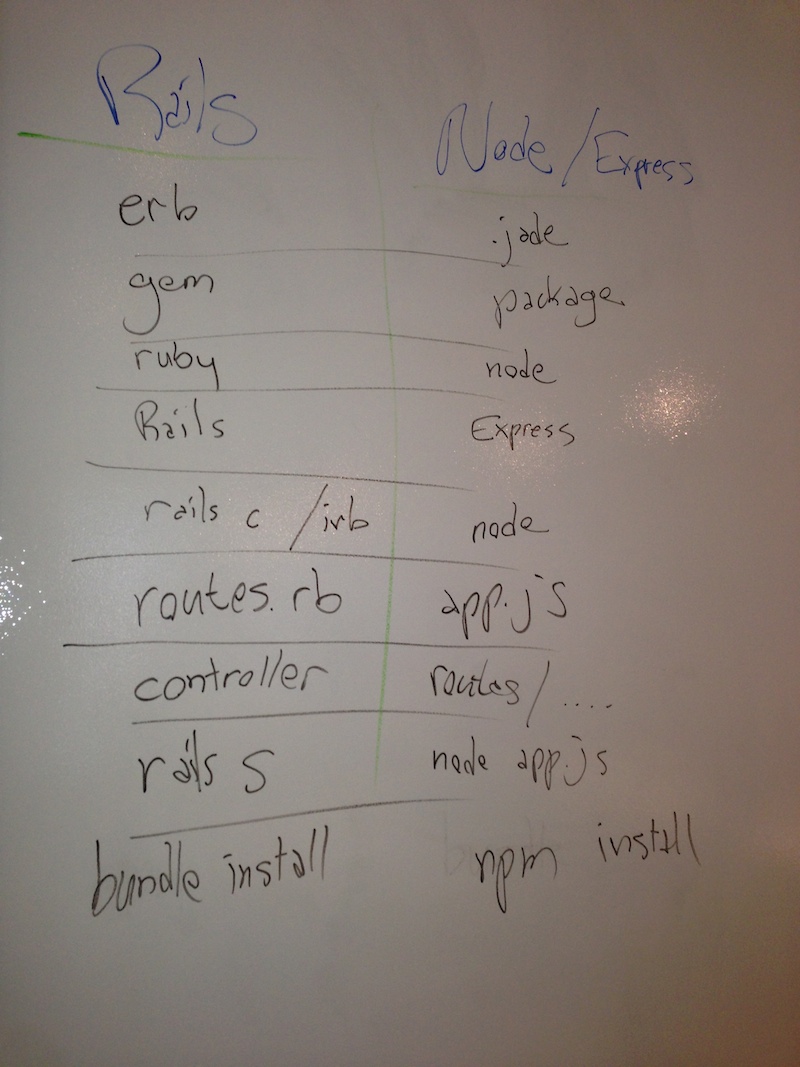 Rails
Node/Express
erb
.jade
gem
package
ruby
node
Rails
Express
rails c /irb
node
routes.rb
app.js
controller
routes/....
rails s
node app.js
bundle install
npm install